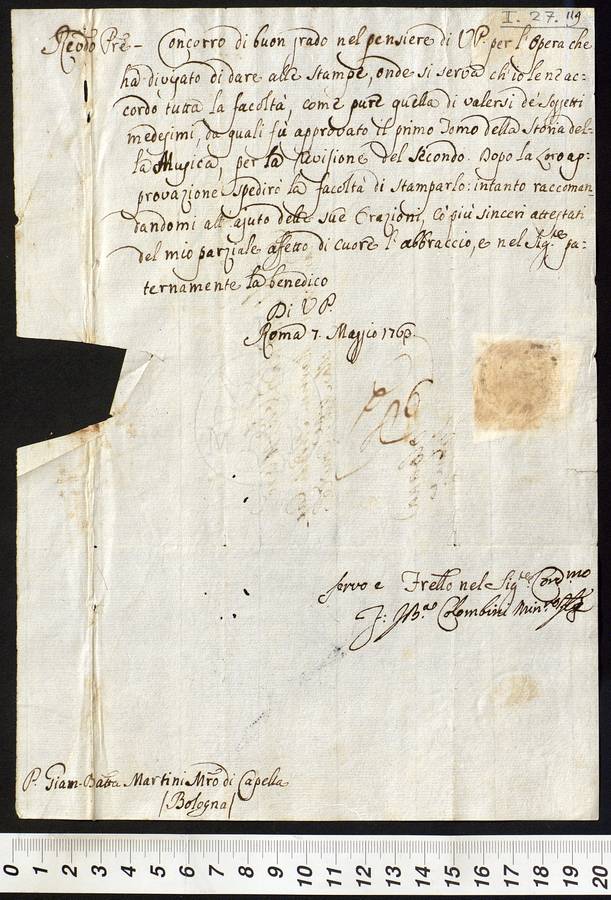 I. 27. 119
Rẽdo Prẽ - Concorro di buon grado nel pensiere di V.P. per l'Opera che
ha divisato di dare alle Stampe, onde si serva ch'io le ne ac-
cordo tutta la facoltà, come pure quella di valersi de' Soggetti
medesimi, da quali fù approvato il primo Tomo della Storia del-
la Musica, per la Revisione del Secondo. Dopo la Loro ap-
provazione spedirò la facoltà di Stamparlo: intanto raccoman-
dandomi all'ajuto delle sue Orazioni, cò più sinceri attestati
del mio parziale affetto di cuore l'abbraccio, e nel Sig.re pa-
ternamente la benedico
Di V.P.
Roma 7. Maggio 176
Servo e Frello nel Sig.re Cord.mo
F: Gio: B.a Colombini Min.ro
P. Giam-Batta Martini Mro di Capella
/Bologna/
0 1 2 3 4 5 6 7 8 9 10 11 12 13 14 15 16 17 18 19 20